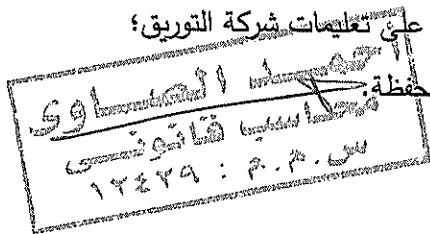 على تعليمات شركة التوريق؛
حفظة.
أحمد الصاوى
محاسب قانونى
س.م.م : ١٢٤٢٩